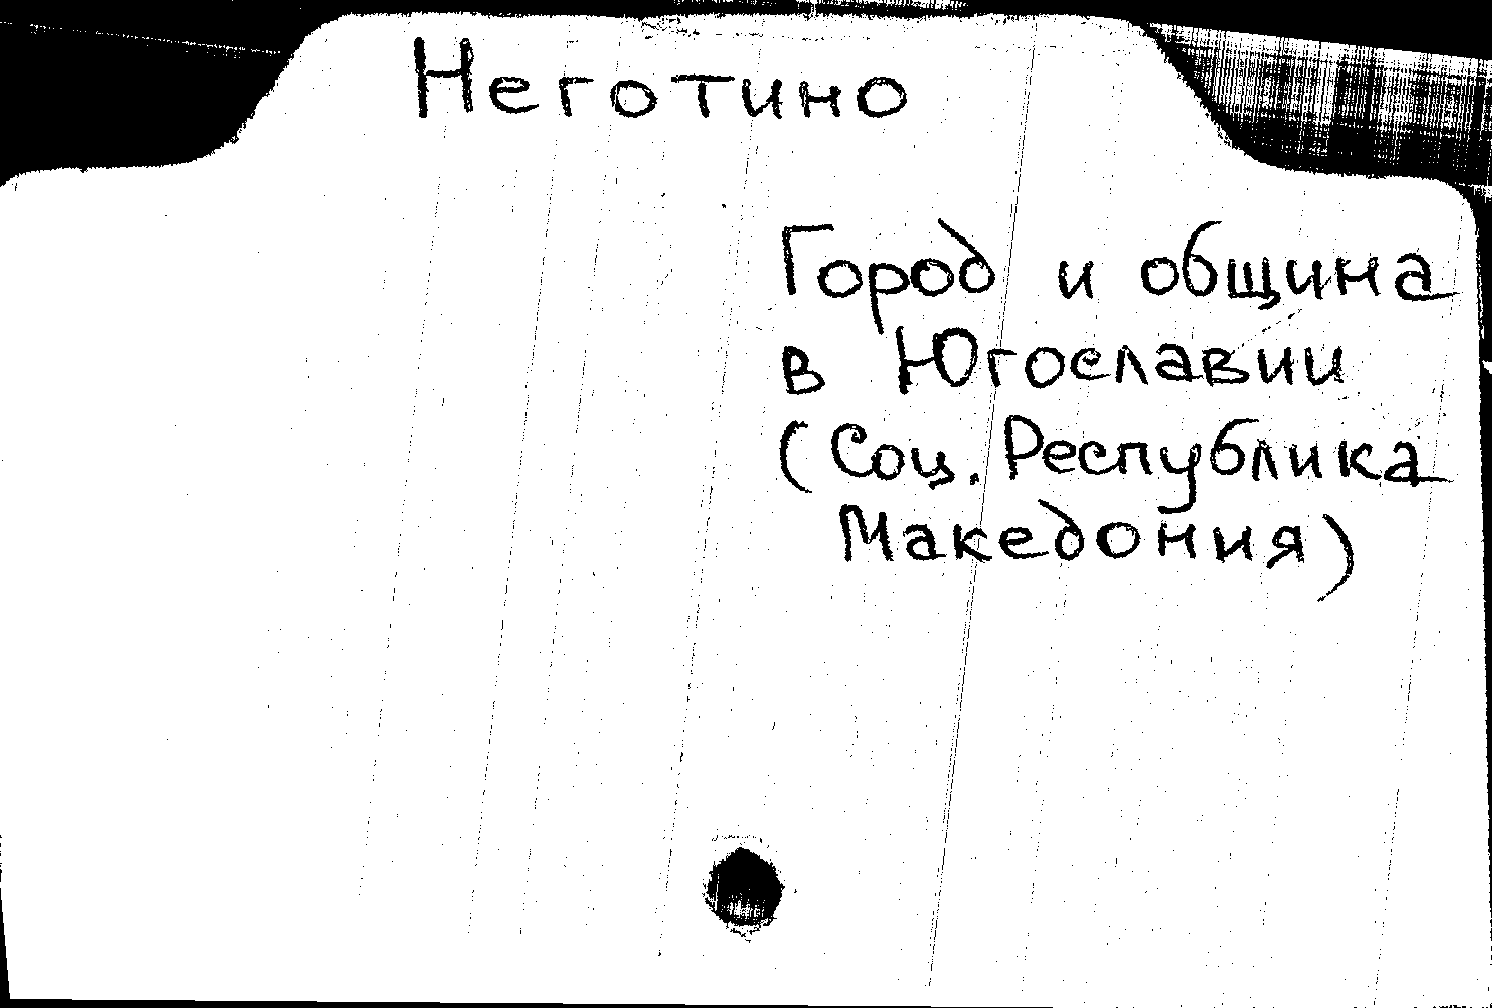 Неготино
Город и община
в Югославии
(Соц. Республика
Македония)